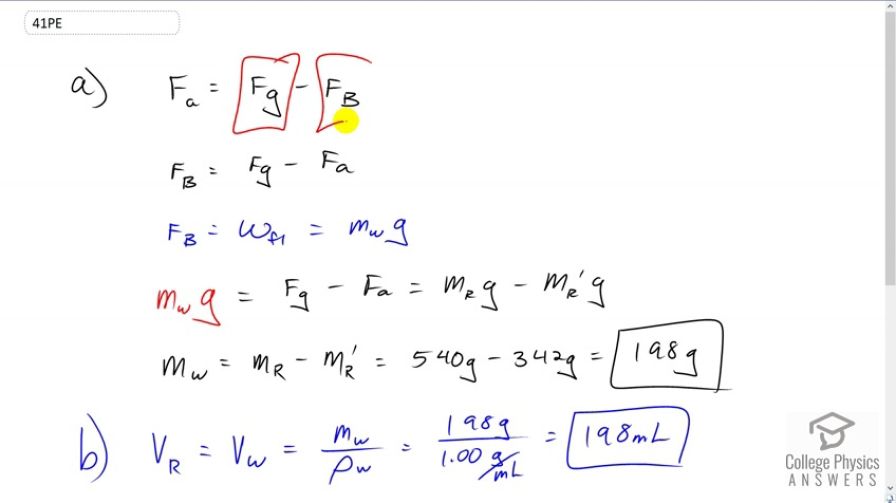 41PE
a) Fₐ = Fg - F_B
F_B = Fg - Fₐ
F_B = W_fl = m_w g
m_w g = Fg - Fₐ = m_R g - m_R' g
m_w = m_R - m_R' = 540g - 342g = 198g
b) V_R = V_w = m_w / ρ_w = 198g / 1.00 g/mL = 198mL
College Physics
ANSWERS